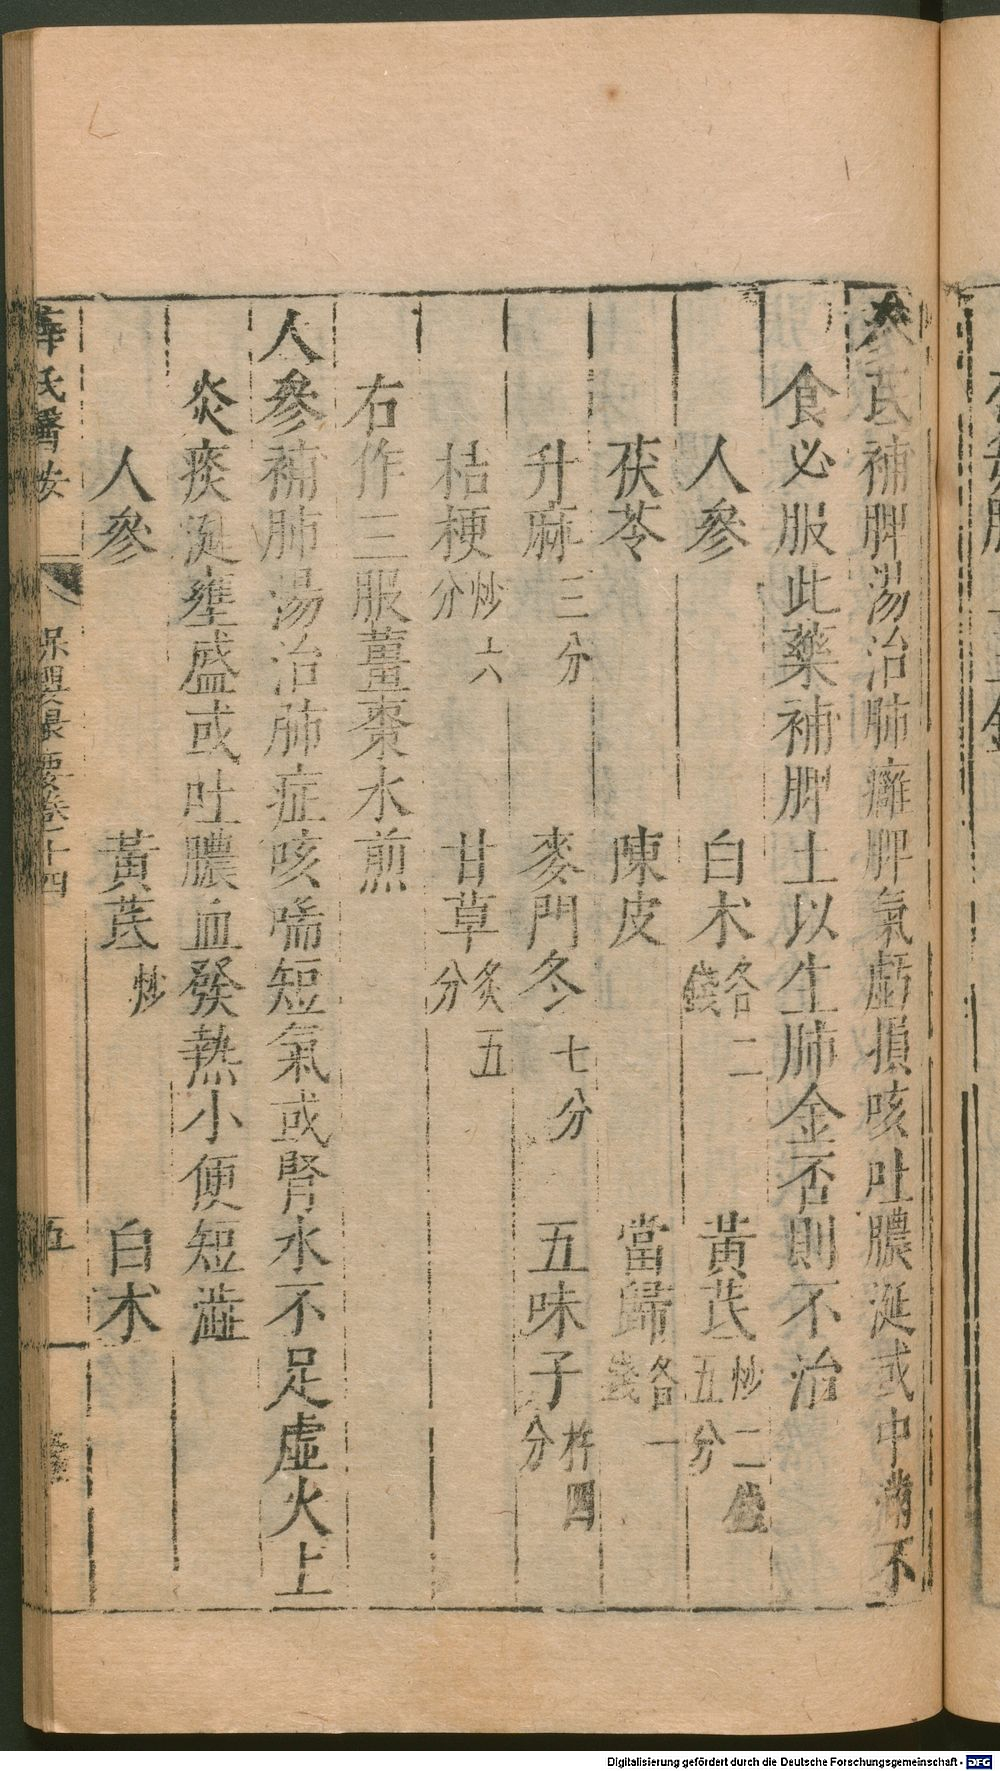 參芪補脾湯治肺癰脾氣虧損咳吐膿涎或中滿不
食必服此藥補脾土以生肺金否則不治
人參 白朮各二錢 黃芪炒二錢五分
茯苓 陳皮 當歸各一錢
升麻三分 麥門冬七分 五味子杵四分
桔梗炒六分 甘草炙五分
右作三服薑棗水煎
人參補肺湯治肺症咳喘短氣或腎水不足虛火上
炎痰涎壅盛或吐膿血發熱小便短澁
人參 黃芪炒 白朮
薛氏醫按 保嬰撮要卷十四 五
Digitalisierung gefördert durch die Deutsche Forschungsgemeinschaft - DFG